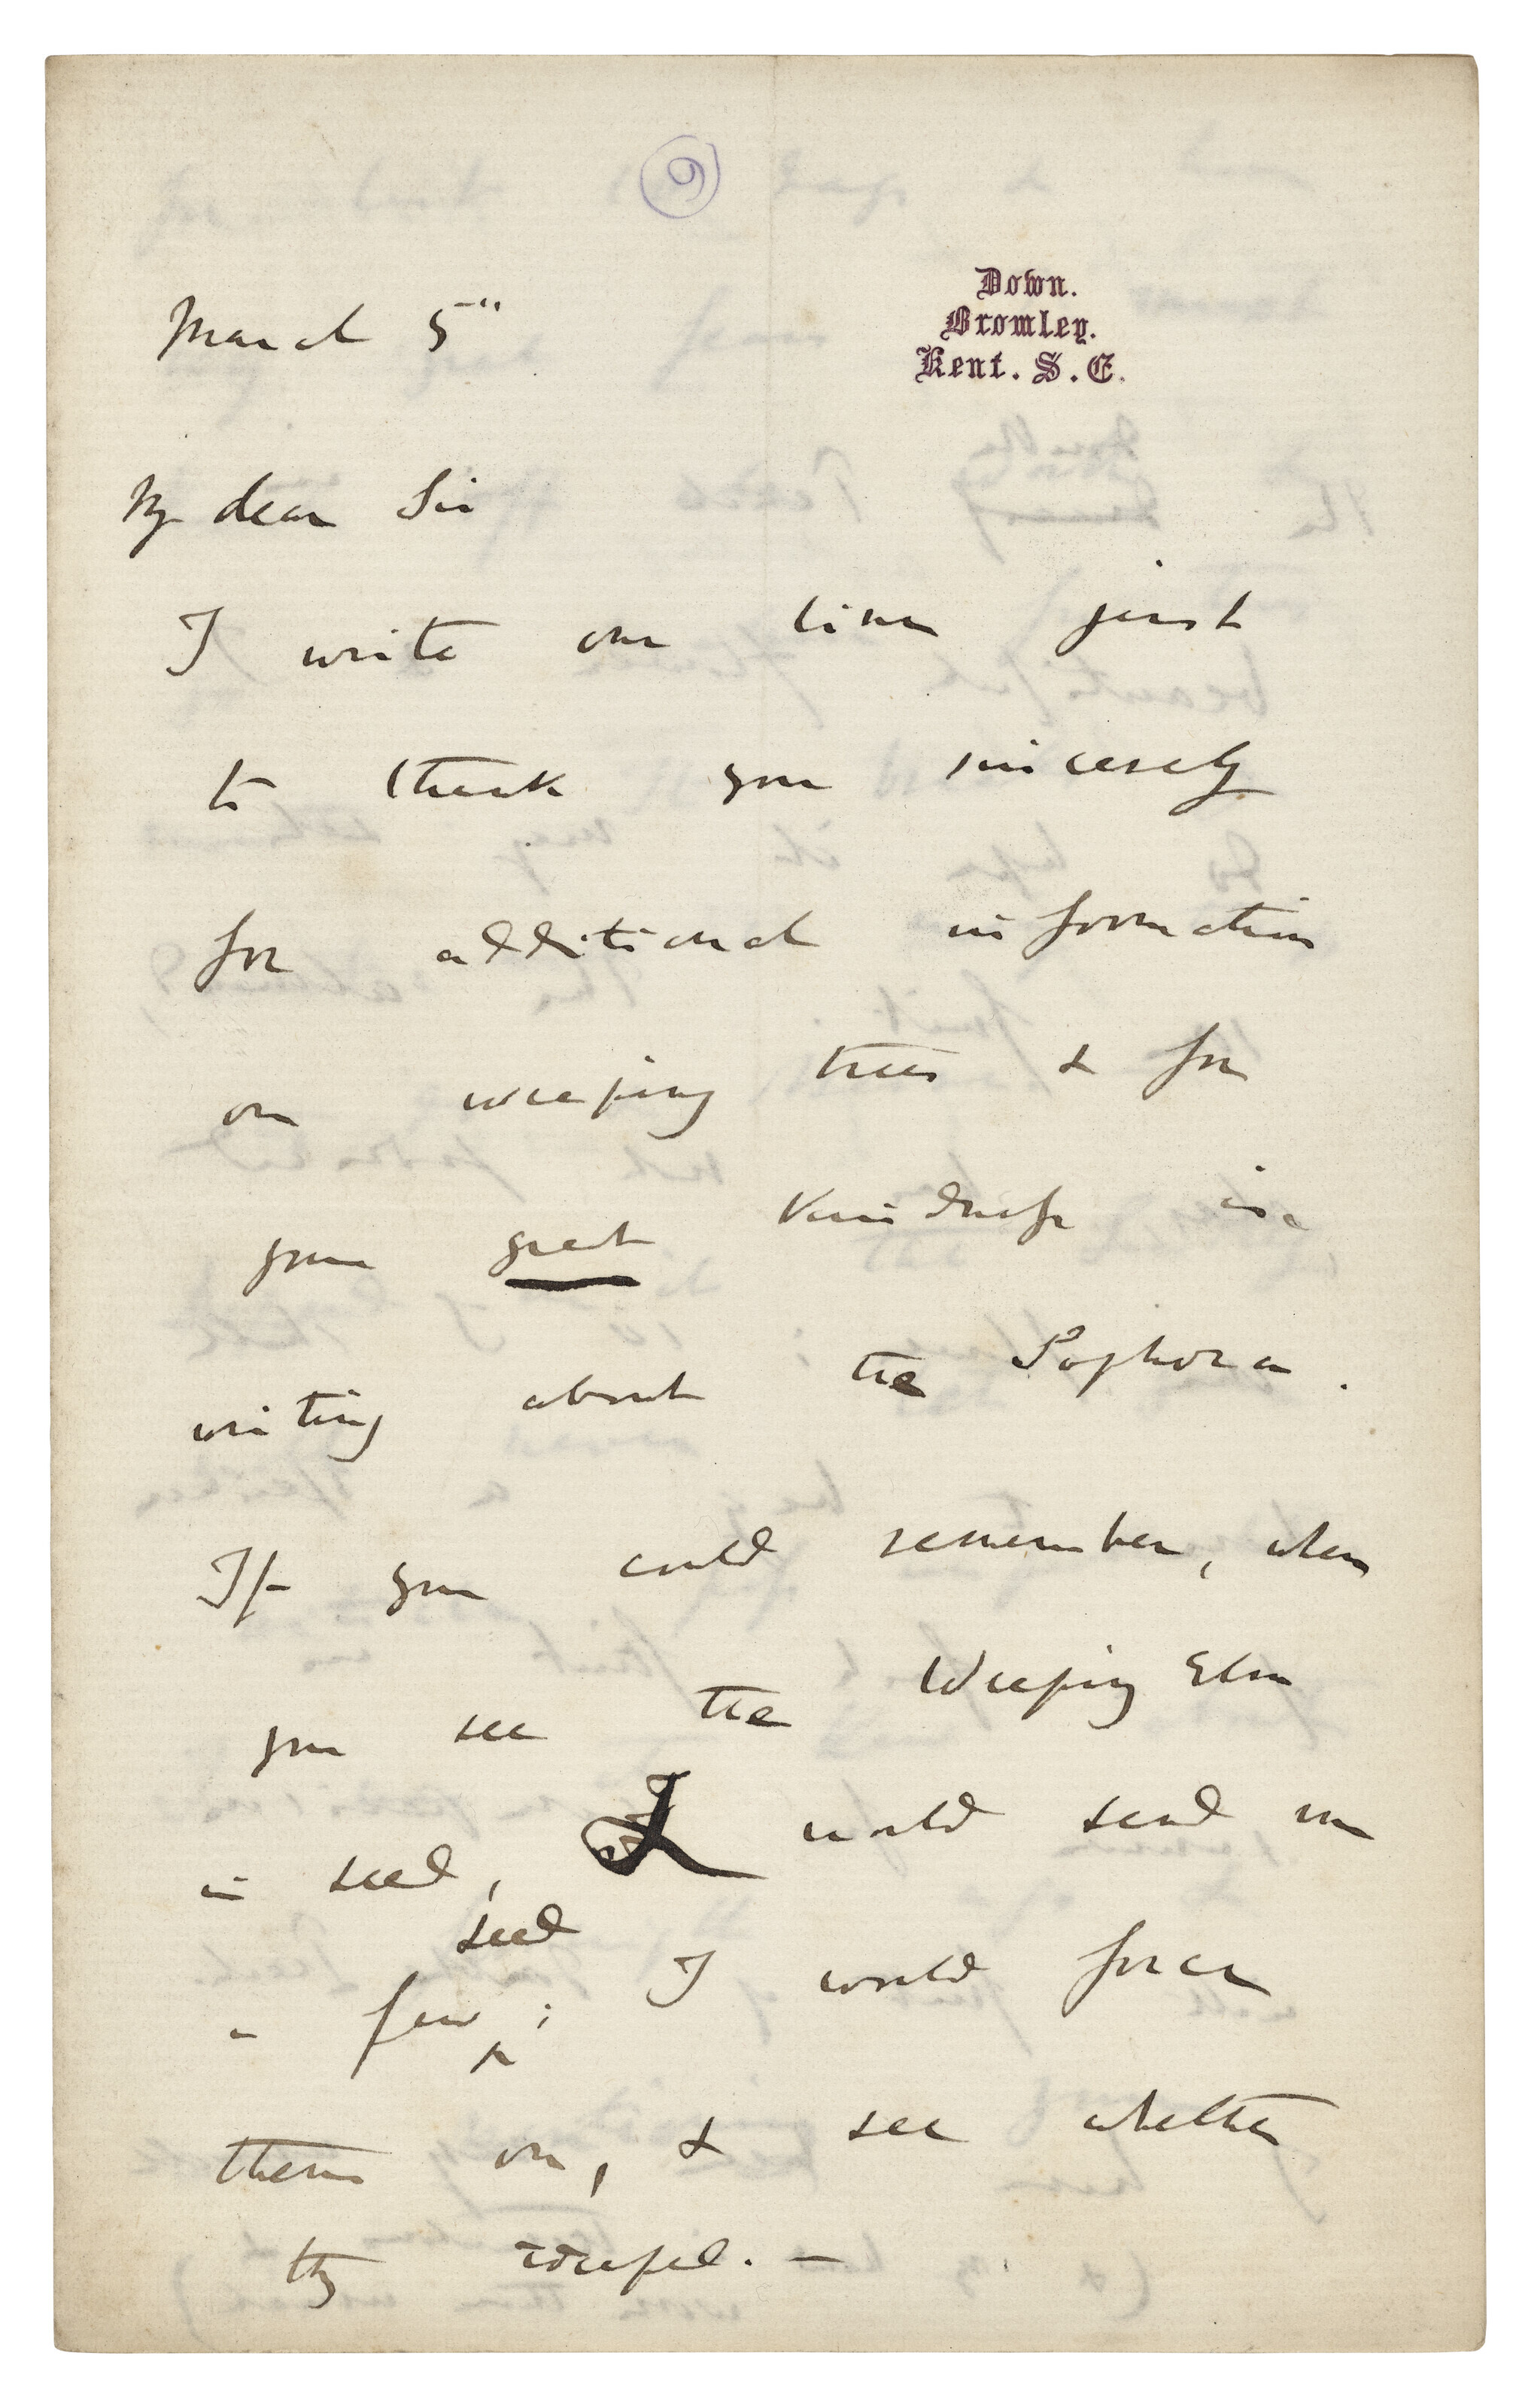 6
Down.
Bromley.
Kent. S.E.
March 5"
My dear Sir
I write one line just
to thank you sincerely
for additional information
on weeping trees & for
your great kindness in
writing about the Sophora.
If you could remember, when
you see the Weeping Elm
in seed, I would send me
seed
a few ; I would force
them on, & see whether
they weeped. —